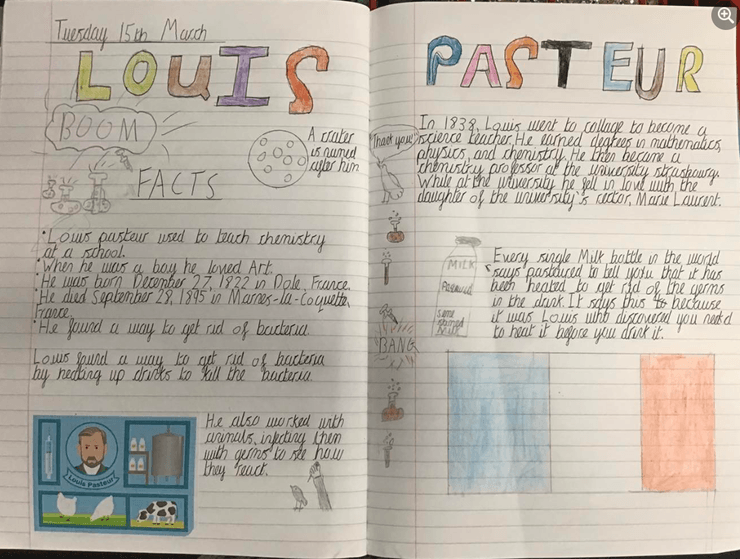 Tuesday 15th March
LOUIS
BOOM
A crater
is named
after him
FACTS
• Louis pasteur used to teach chemistry
at a school.
• When he was a boy he loved Art.
• He was born December 27, 1822 in Dole, France.
• He died September 28, 1895 in Marnes-la-Coquette,
France.
• He found a way to get rid of bacteria.
Louis found a way to get rid of bacteria
by heating up drinks to kill the bacteria.
Louis Pasteur
He also worked with
animals, infecting them
with germs to see how
they react.
PASTEUR
In 1838, Louis went to collage to become a
science teacher. He earned degrees in mathematics,
physics, and chemistry. He then became a
chemistry professor at the university strasbourg.
While at the university he fell in love with the
daughter of the university's rector, Marie Laurent.
"Thank you"
MILK
BANG
Every single Milk bottle in the world
says pastured to tell you that it has
been heated to get rid of the germs
in the drink. It says this is because
it was Louis who discovered you need
to heat it before you drink it.